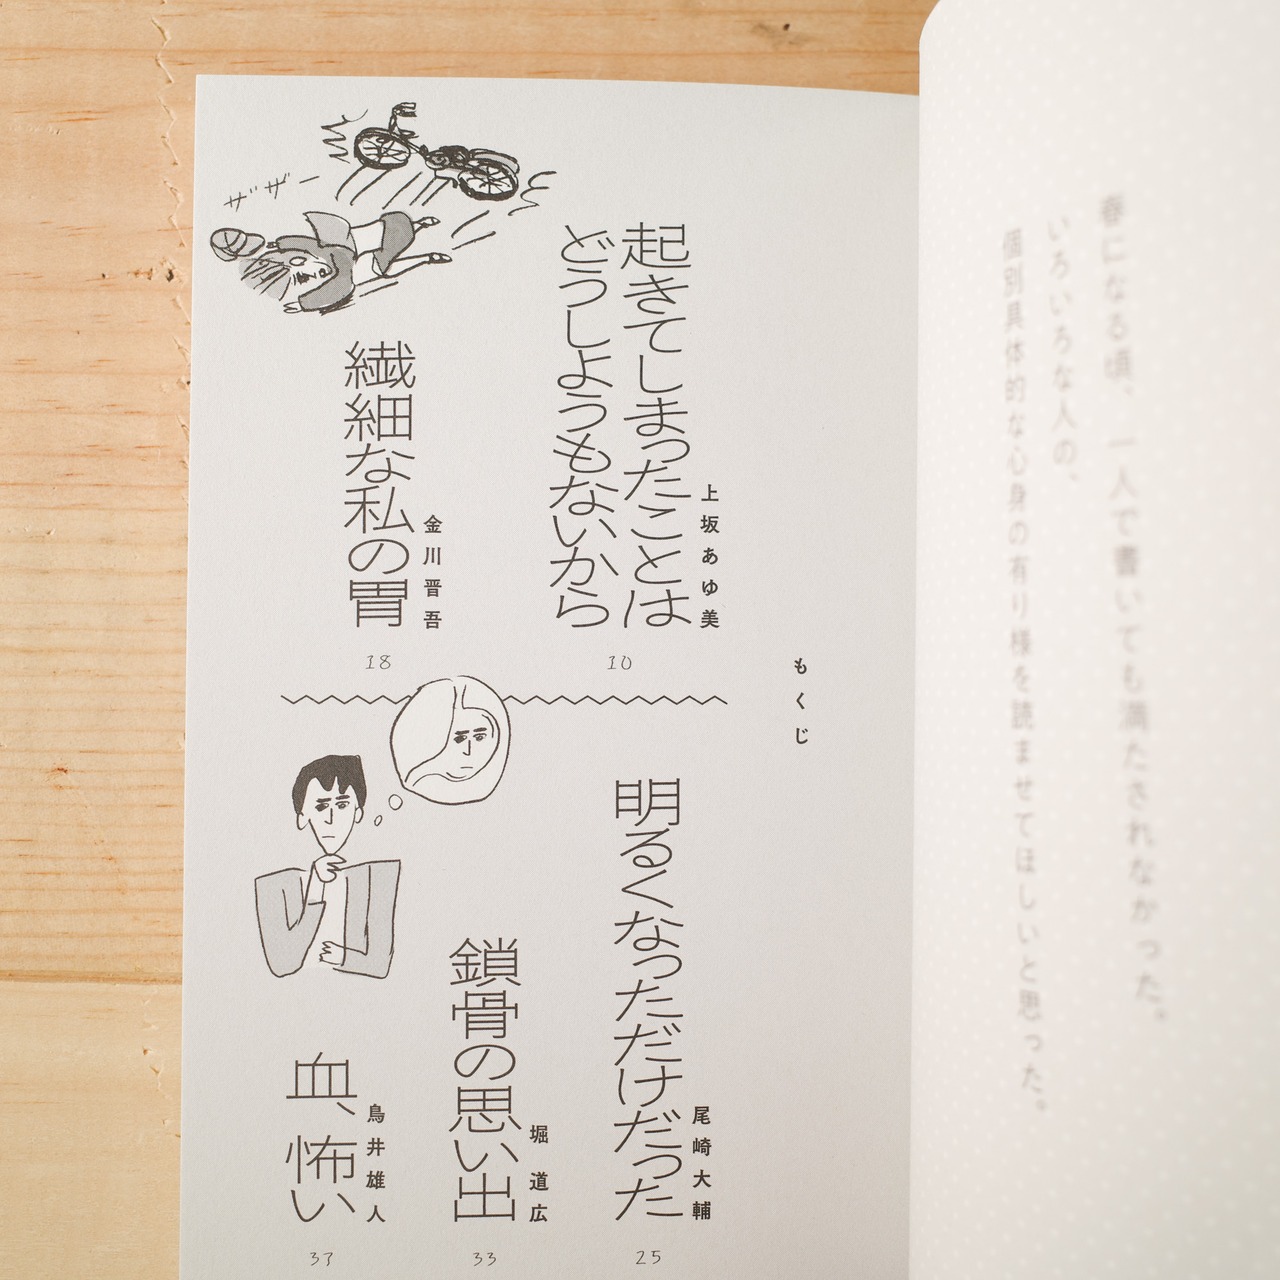 春になる頃、一人で書いても満たされなかった。
いろいろな人の、
個別具体的な心身の有り様を読ませてほしいと思った。
もくじ
起きてしまったことは
どうしようもないから
上坂あゆ美
10
繊細な私の胃
金川晋吾
18
ザザー
明るくなっただけだった
尾崎大輔
25
鎖骨の思い出
堀道広
33
血、怖い
鳥井雄人
37